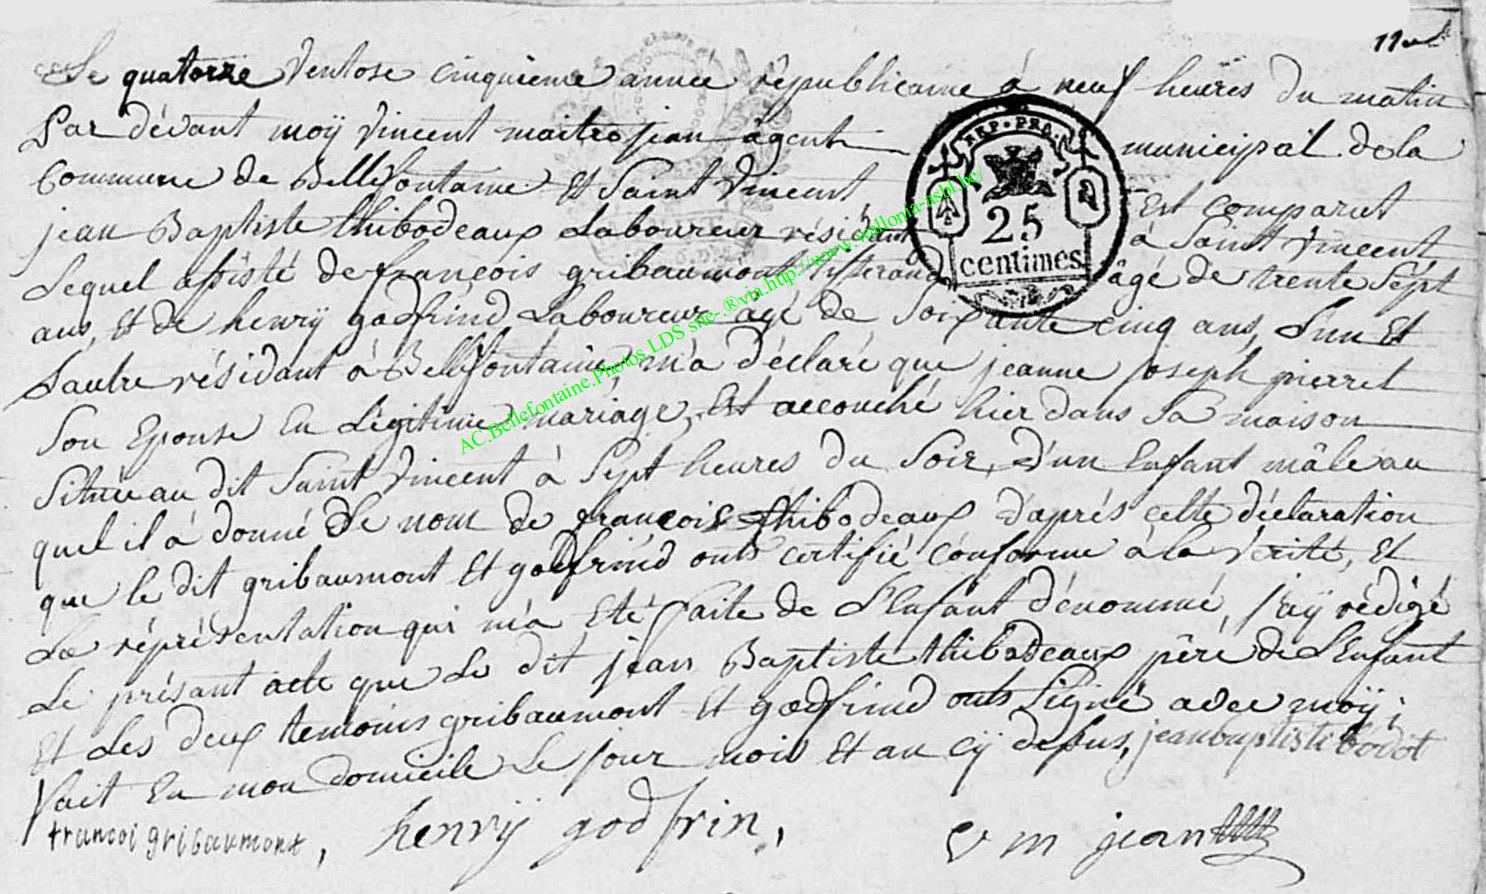 11e
Le quatorze Ventose cinquieme année républicaine à neuf heures du matin
Par dévant moÿ Vincent maitrejean agent municipal de la
Commune de Bellefontaine et Saint Vincent Est comparut
jean Baptiste thibodeaux Laboureur résidant à Saint Vincent
Lequel assisté de françois gribaumont tisserand âgé de trente Sept
ans, et de henrÿ godfrind Laboureur agé de Soixante cinq ans, L'un Et
L'autre résidant à Bellefontaine, m'a déclaré que jeanne joseph pierret
Son Epouse En Légitime mariage, Est accouché hier dans Sa maison
Située au dit Saint Vincent à Sept heures du Soir, d'un Enfant mâle au
quel il à donné Le nom de françois thibodeaux d'aprés cette déclaration
que le dit gribaumont Et godfrind onts certifié conforme à la Vérité, Et
La réprésentation qui m'à Eté faite de L'Enfant dénommé, j'aÿ rédigé
Le présant acte que Le dit jean Baptiste thibodeaux pére de L'Enfant
Et Les deux temoins gribaumont Et godfrind onts Signé avec moÿ;
Fait En mon domicile Le jour mois Et an cÿ dessus, jeanbaptiste bodot
francoi gribaumont, henrÿ godfrin, V m jean
REP. FRA.
25
centimes
AC.Bellefontaine.Photos LDS site-.®via.http://www.wallonia-asbl.be/